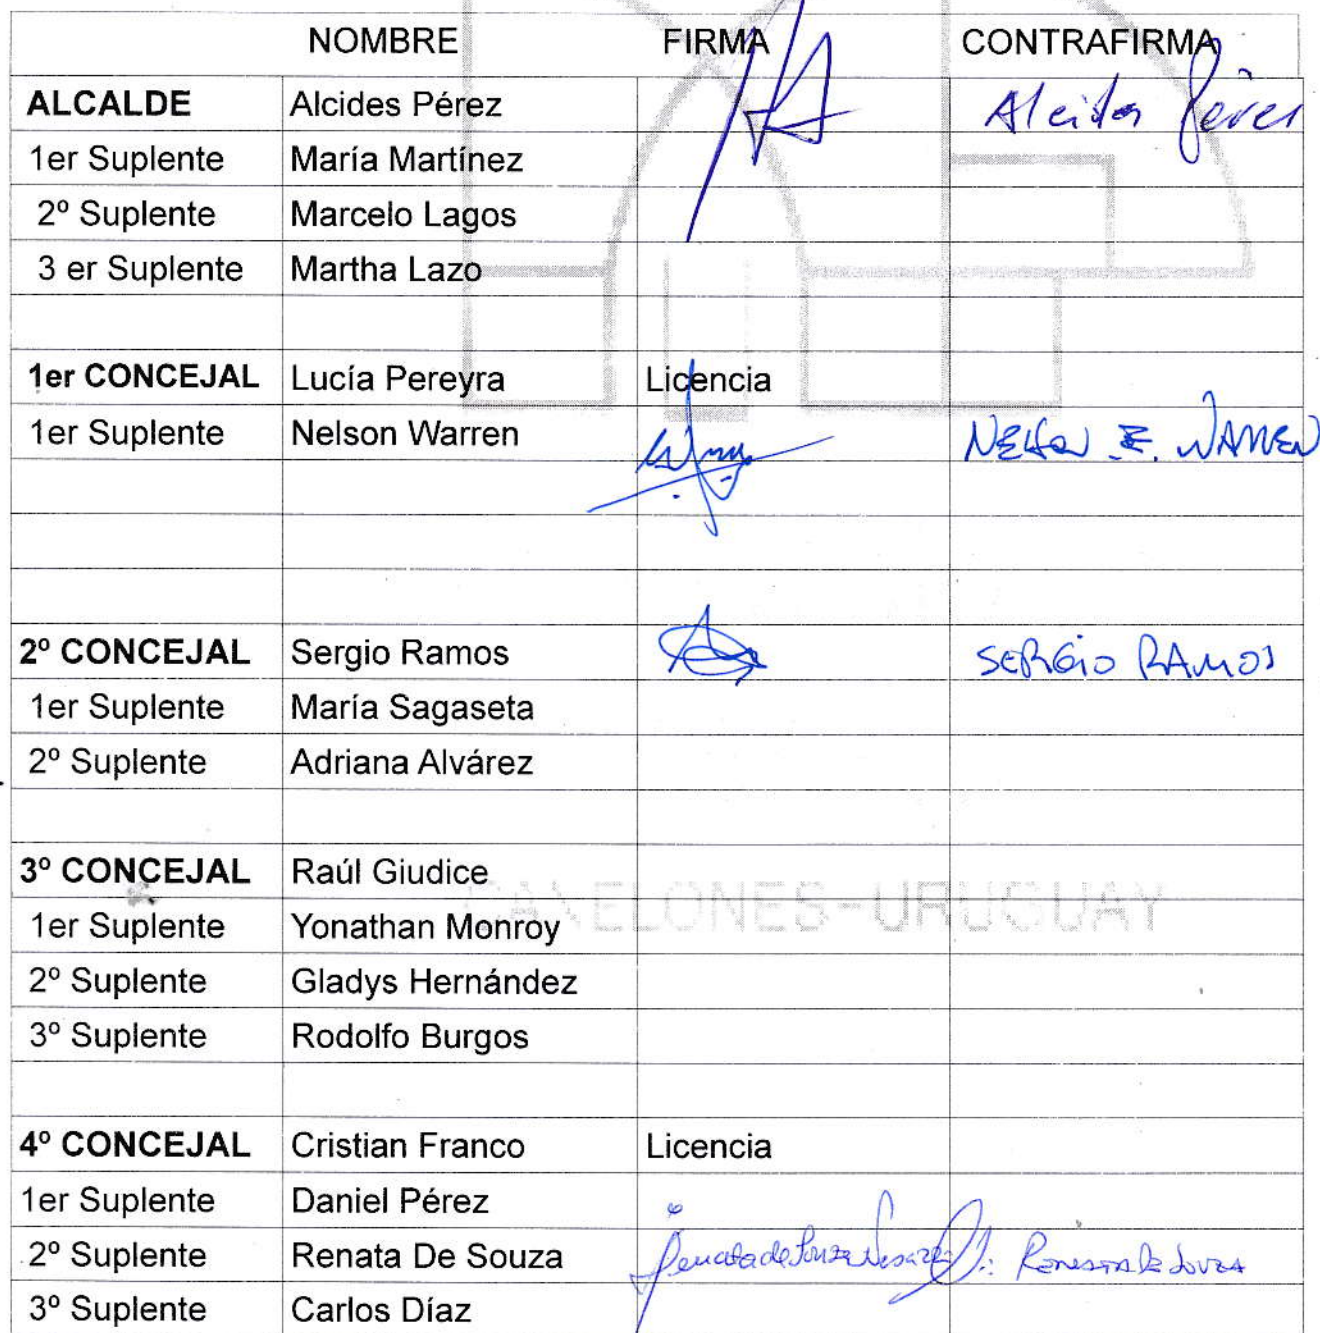 NOMBRE FIRMA CONTRAFIRMA
ALCALDE Alcides Pérez Alcides Pérez
1er Suplente María Martínez
2º Suplente Marcelo Lagos
3 er Suplente Martha Lazo
1er CONCEJAL Lucía Pereyra Licencia
1er Suplente Nelson Warren NELSON E. WARREN
2º CONCEJAL Sergio Ramos SERGIO RAMOS
1er Suplente María Sagaseta
2º Suplente Adriana Alvárez
3º CONCEJAL Raúl Giudice
CANELONES-URUGUAY
1er Suplente Yonathan Monroy
2º Suplente Gladys Hernández
3º Suplente Rodolfo Burgos
4º CONCEJAL Cristian Franco Licencia
1er Suplente Daniel Pérez
2º Suplente Renata De Souza Renata de Souza RENATA DE SOUZA
3º Suplente Carlos Díaz